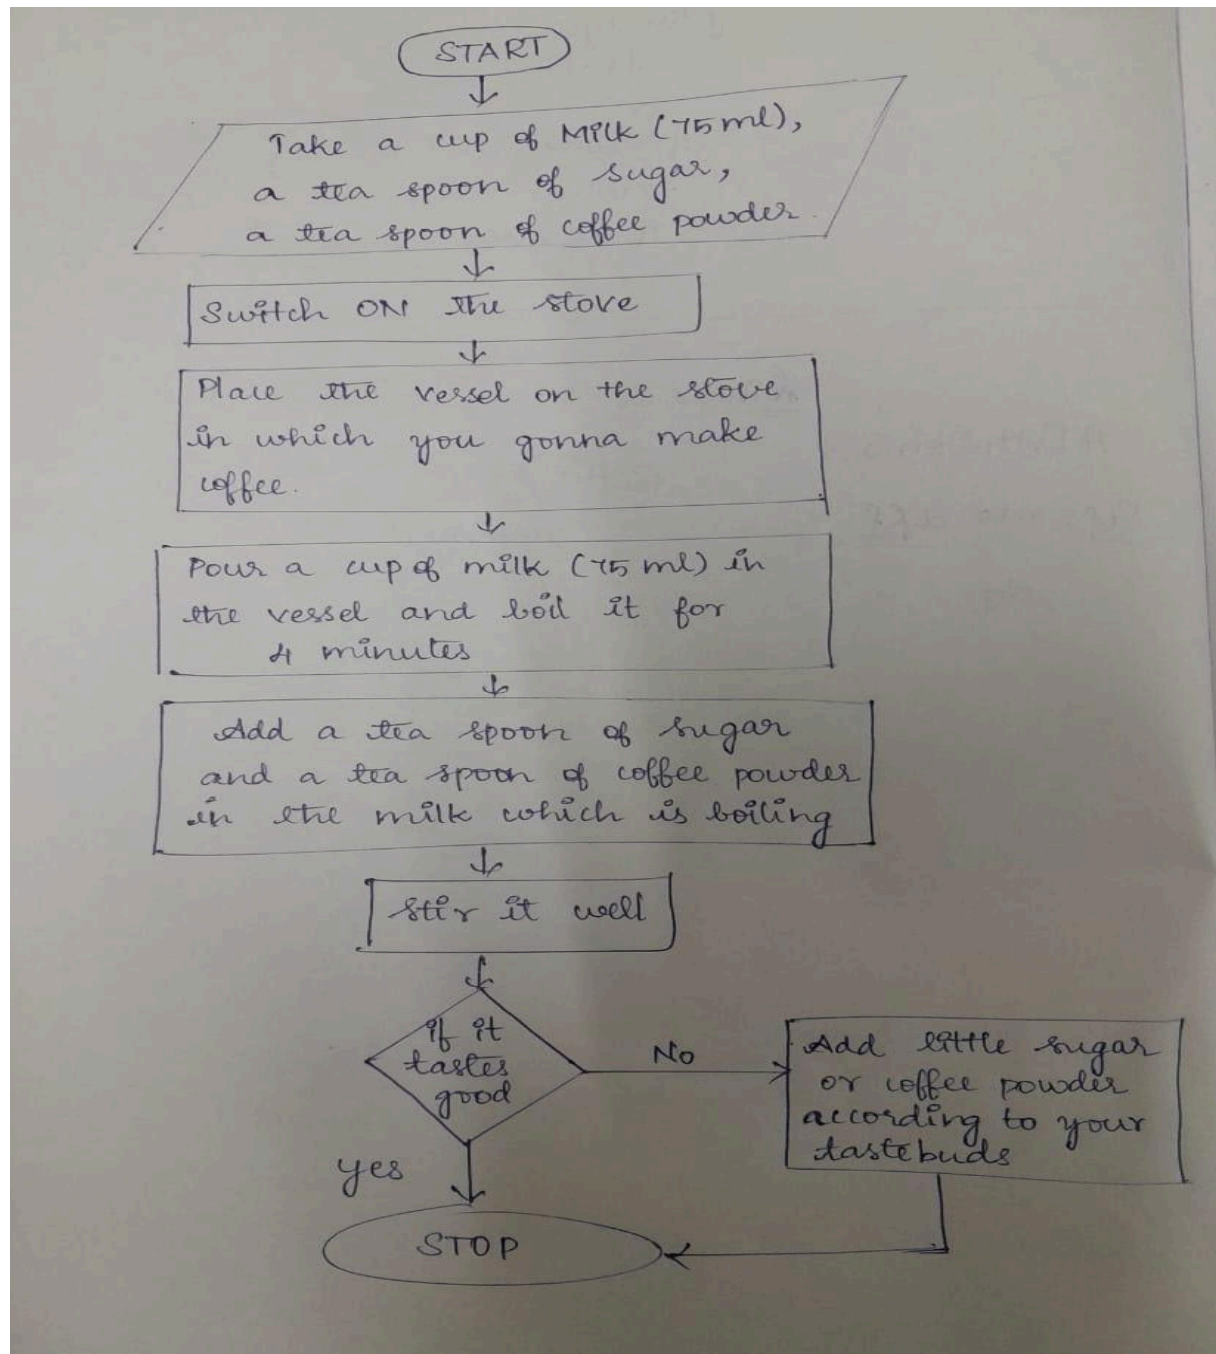 START
Take a cup of Milk (75ml),
a tea spoon of sugar,
a tea spoon of coffee powder.
Switch ON the stove
Place the vessel on the stove
in which you gonna make
coffee.
Pour a cup of milk (75 ml) in
the vessel and boil it for
4 minutes
Add a tea spoon of sugar
and a tea spoon of coffee powder
in the milk which is boiling
Stir it well
if it
tastes
good
No
Add little sugar
or coffee powder
according to your
tastebuds
yes
STOP